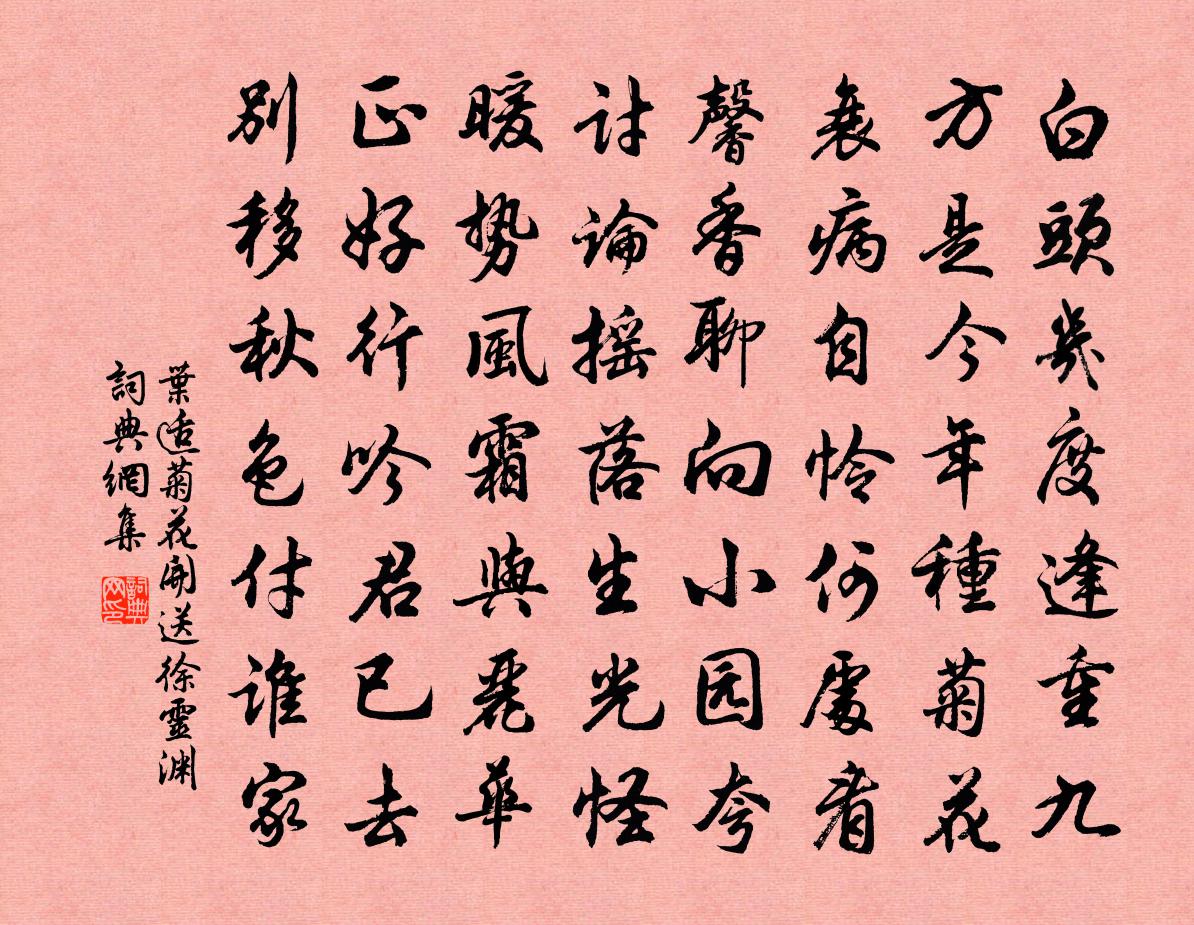 白頭幾度逢重九
方是今年種菊花
衰病自怜何處看
馨香聊向小园夸
討論摇落生光怪
暖势風霜與麗華
正好行吟君已去
別移秋色付誰家
葉适菊花開送徐靈渊
詞典網集